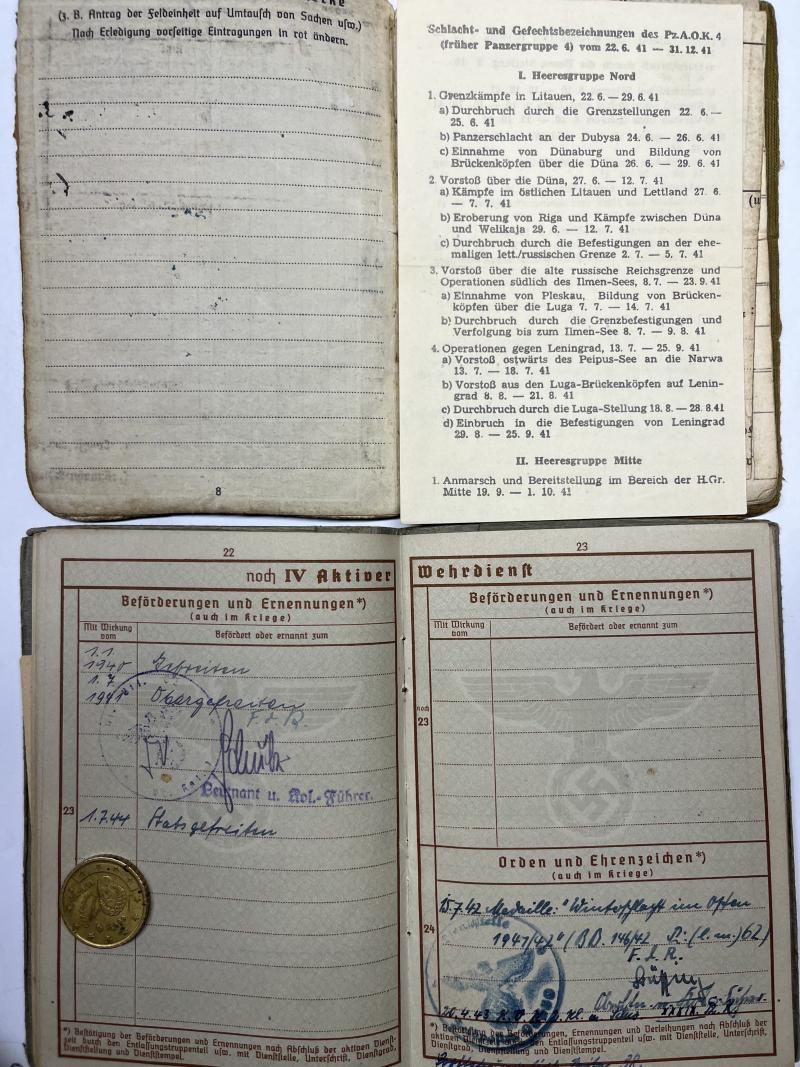 (z. B. Antrag der Feldeinheit auf Umtausch von Sachen usw.)
Nach Erledigung vorseitige Eintragungen in rot ändern.
8
Schlacht- und Gefechtsbezeichnungen des Pz.A.O.K. 4
(früher Panzergruppe 4) vom 22. 6. 41 — 31. 12. 41
I. Heeresgruppe Nord
1. Grenzkämpfe in Litauen, 22. 6. — 29. 6. 41
a) Durchbruch durch die Grenzstellungen 22. 6. —
25. 6. 41
b) Panzerschlacht an der Dubysa 24. 6. — 26. 6. 41
c) Einnahme von Dünaburg und Bildung von
Brückenköpfen über die Düna 26. 6. — 29. 6. 41
2. Vorstoß über die Düna, 27. 6. — 12. 7. 41
a) Kämpfe im östlichen Litauen und Lettland 27. 6.
— 7. 7. 41
b) Eroberung von Riga und Kämpfe zwischen Düna
und Welikaja 29. 6. — 12. 7. 41
c) Durchbruch durch die Befestigungen an der ehe-
maligen lett./russischen Grenze 2. 7. — 5. 7. 41
3. Vorstoß über die alte russische Reichsgrenze und
Operationen südlich des Ilmen-Sees, 8. 7. — 23. 9. 41
a) Einnahme von Pleskau, Bildung von Brücken-
köpfen über die Luga 7. 7. — 14. 7. 41
b) Durchbruch durch die Grenzbefestigungen und
Verfolgung bis zum Ilmen-See 8. 7. — 9. 8. 41
4. Operationen gegen Leningrad, 13. 7. — 25. 9. 41
a) Vorstoß ostwärts des Peipus-See an die Narwa
13. 7. — 18. 7. 41
b) Vorstoß aus den Luga-Brückenköpfen auf Lenin-
grad 8. 8. — 21. 8. 41
c) Durchbruch durch die Luga-Stellung 18. 8. — 28. 8. 41
d) Einbruch in die Befestigungen von Leningrad
29. 8. — 25. 9. 41
II. Heeresgruppe Mitte
1. Anmarsch und Bereitstellung im Bereich der H.Gr.
Mitte 19. 9. — 1. 10. 41
(u
22
noch IV Aktiver
Beförderungen und Ernennungen*)
(auch im Kriege)
Mit Wirkung vom
Befördert oder ernannt zum
1.1.
1940 Gefreiten
1.7.
1941 Obergefreiten
F. d. R.
Leutnant u. Kol.-Führer.
23
1.7.44 Stabsgefreiten
*) Bestätigung der Beförderungen und Ernennungen nach Abschluß der aktiven Dienst-
zeit durch den Entlassungstruppenteil usw. mit Dienststelle, Unterschrift, Dienstgrad,
Dienststellung und Dienststempel.
23
Wehrdienst
Beförderungen und Ernennungen*)
(auch im Kriege)
Mit Wirkung vom
Befördert oder ernannt zum
noch
23
Orden und Ehrenzeichen*)
(auch im Kriege)
15.7.42 Medaille: "Winterschlacht im Osten
24
1941/42"
F. d. R.
20.4.43
*) Bestätigung der Beförderungen, Ernennungen und Verleihungen nach Abschluß der
aktiven Dienstzeit durch den Entlassungstruppenteil usw. mit Dienststelle, Unterschrift,
Dienstgrad, Dienststellung und Dienststempel.